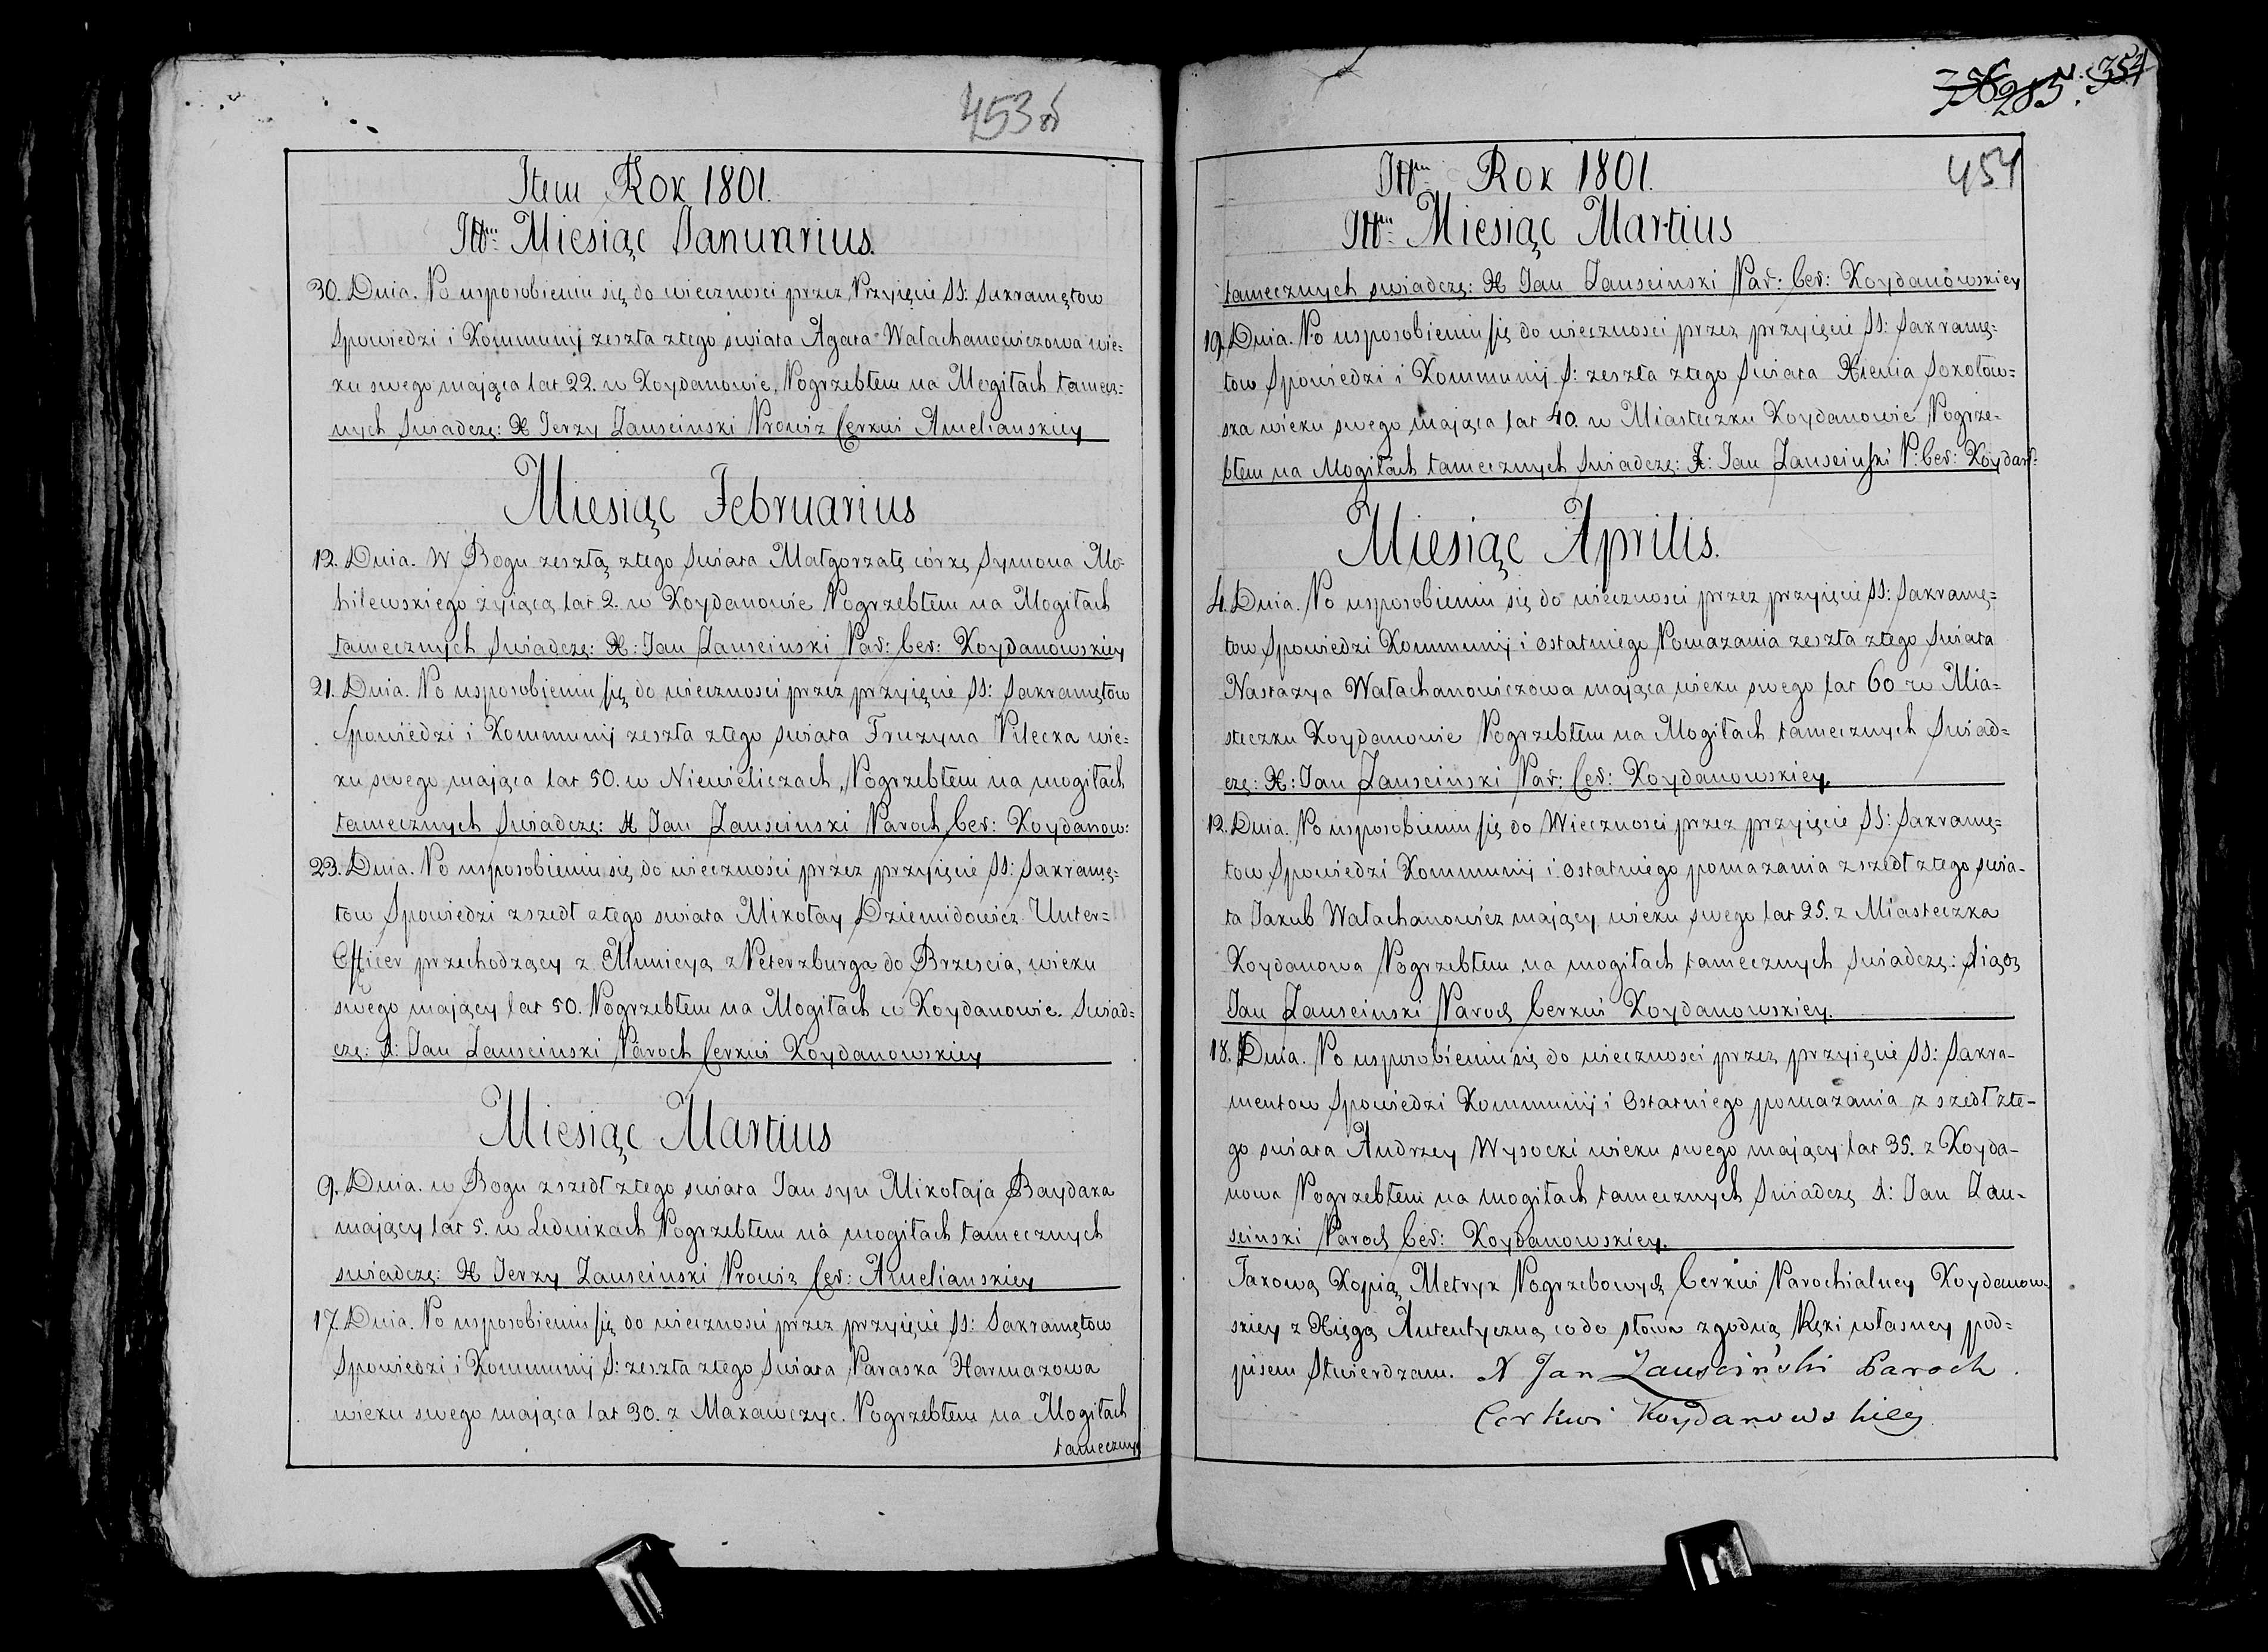 453 об
Item Rok 1801.
Ittm: Miesiąc Januarius.
30. Dnia. Po usposobieniu się do wiecznosci przez Przyięcie SS: Sakramętow
Spowiedzi i Kommunij zeszła ztego swiata Agata Wałachanowiczowa wie=
ku swego mająca lat 22. w Koydanowie, Pogrzebłem na Mogiłach tamecz=
nych Swiadczę: X Jerzy Zausciński Prowiz Cerkwi Amelianskiey
Miesiąc Februarius
12. Dnia. W Bogu zeszłą ztego Swiata Małgorzatę córkę Symona Mo=
hilewskiego żyiącą lat 2. w Koydanowie Pogrzebłem na Mogiłach
tamecznych Swiadczę: X: Jan Zausciński Par: Cer: Koydanowskiey
21. Dnia. Po usposobieniu się do wiecznosci przez przyięcie SS: Sakramętow
Spowiedzi i Kommunij zeszła ztego swiata Fruzyna Pilecka wie=
ku swego mająca lat 50. w Niewieliczach, Pogrzebłem na mogiłach
tamecznych Swiadczę: X Jan Zausciński Paroch Cer: Koydanow:
23. Dnia. Po usposobieniu się do wieczności przez przyięcie SS: Sakramę=
tow Spowiedzi zszedł ztego swiata Mikołay Dziemidowicz Unter=
Officer przechodzący z Amunicyą z Peterzburga do Brzescia, wieku
swego mający lat 50. Pogrzebłem na Mogiłach w Koydanowie. Swiad=
czę: X: Jan Zausciński Paroch Cerkwi Koydanowskiey
Miesiąc Martius
9. Dnia. w Bogu zszedł ztego swiata Jan syn Mikołaja Baydaka
mający lat 5. w Lednikach Pogrzebłem na mogiłach tamecznych
swiadczę: X Jerzy Zausciński Prowiz Cer: Amelianskiey
17. Dnia. Po usposobieniu się do wiecznosci przez przyięcie SS: Sakramętow
Spowiedzi i Kommunij S: zeszła ztego Swiata Paraska Harmazowa
wieku swego mająca lat 30. z Makawczyc. Pogrzebłem na Mogiłach
tameczny
285. 354
454
Ittm: Rok 1801.
Ittm: Miesiąc Martius
tamecznych swiadczę: X Jan Zausciński Par: Cer: Koydanowskiey
19. Dnia. Po usposobieniu się do wiecznosci przez przyięcie SS: Sakramę=
tow Spowiedzi i Kommunij S: zeszła ztego Swiata Xienia Sokołow=
ska wieku swego mająca lat 40. w Miasteczku Koydanowie Pogrze=
błem na Mogiłach tamecznych Swiadczę: X: Jan Zausciński P: Cer: Koydan:
Miesiąc Aprilis.
4. Dnia. Po usposobieniu się do wiecznosci przez przyięcie SS: Sakramę=
tow Spowiedzi Kommunij i ostatniego Pomazania zeszła ztego Swiata
Nastazya Wałachanowiczowa mająca wieku swego lat 60 w Mia=
steczku Koydanowie Pogrzebłem na Mogiłach tamecznych Swiad=
czę: X: Jan Zausciński Par: Cer: Koydanowskiey.
12. Dnia. Po usposobieniu się do Wiecznosci przez przyięcie SS: Sakramę=
tow Spowiedzi Kommunij i ostatniego pomazania zszedł ztego swia-
ta Jakub Wałachanowicz mający wieku swego lat 25. z Miasteczka
Koydanowa Pogrzebłem na mogiłach tamecznych Swiadczę: Xiądz
Jan Zausciński Paroch Cerkwi Koydanowskiey.
18. Dnia. Po usposobieniu się do wiecznosci przez przyięcie SS: Sakra-
mentow Spowiedzi Kommunij i Ostatniego pomazania zszedł zte-
go swiata Andrzey Wysocki wieku swego mający lat 35. z Koyda-
nowa Pogrzebłem na mogiłach tamecznych Swiadczę X: Jan Zau-
sciński Paroch Cer: Koydanowskiey.
Takową Kopią Metryk Pogrzebowych Cerkwi Parochialney Koydanow=
skiey z Xięgą Autentyczną co do słowa zgodną Ręki własney pod=
pisem Stwierdzam. X Jan Zausciński Paroch.
Cerkwi Koydanowskiey